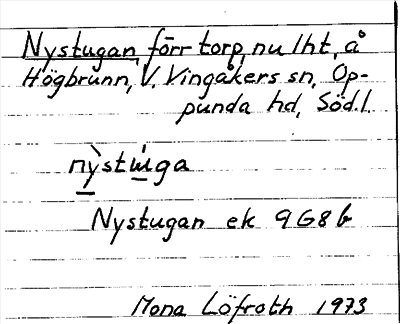 Nystugan, förr torp, nu lht, å
Högbrunn, V. Vingåkers sn, Op-
punda hd, Söd.l.
nỳstúga
Nystugan ek 9G8b
Mona Löfroth 1973